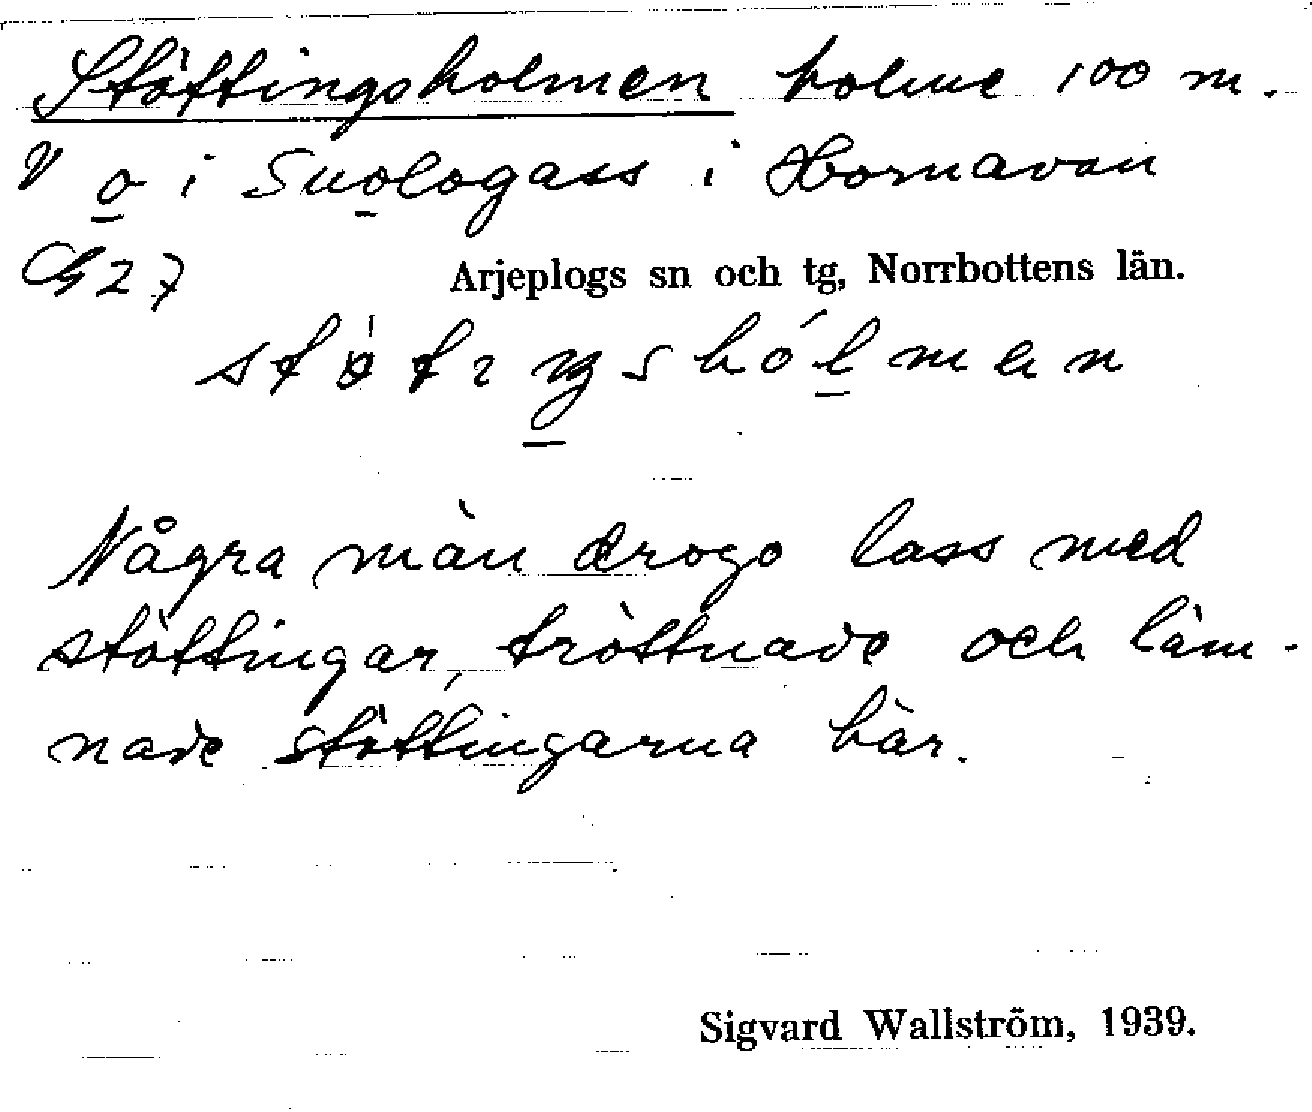 Stöttingsholmen holme 100 m.
V o i Suologass i Hornavan
G 27 Arjeplogs sn och tg, Norrbottens län.
Några män drogo lass med
stöttingar, tröttnade och läm-
nade stöttingarna här.
Sigvard Wallström, 1939.